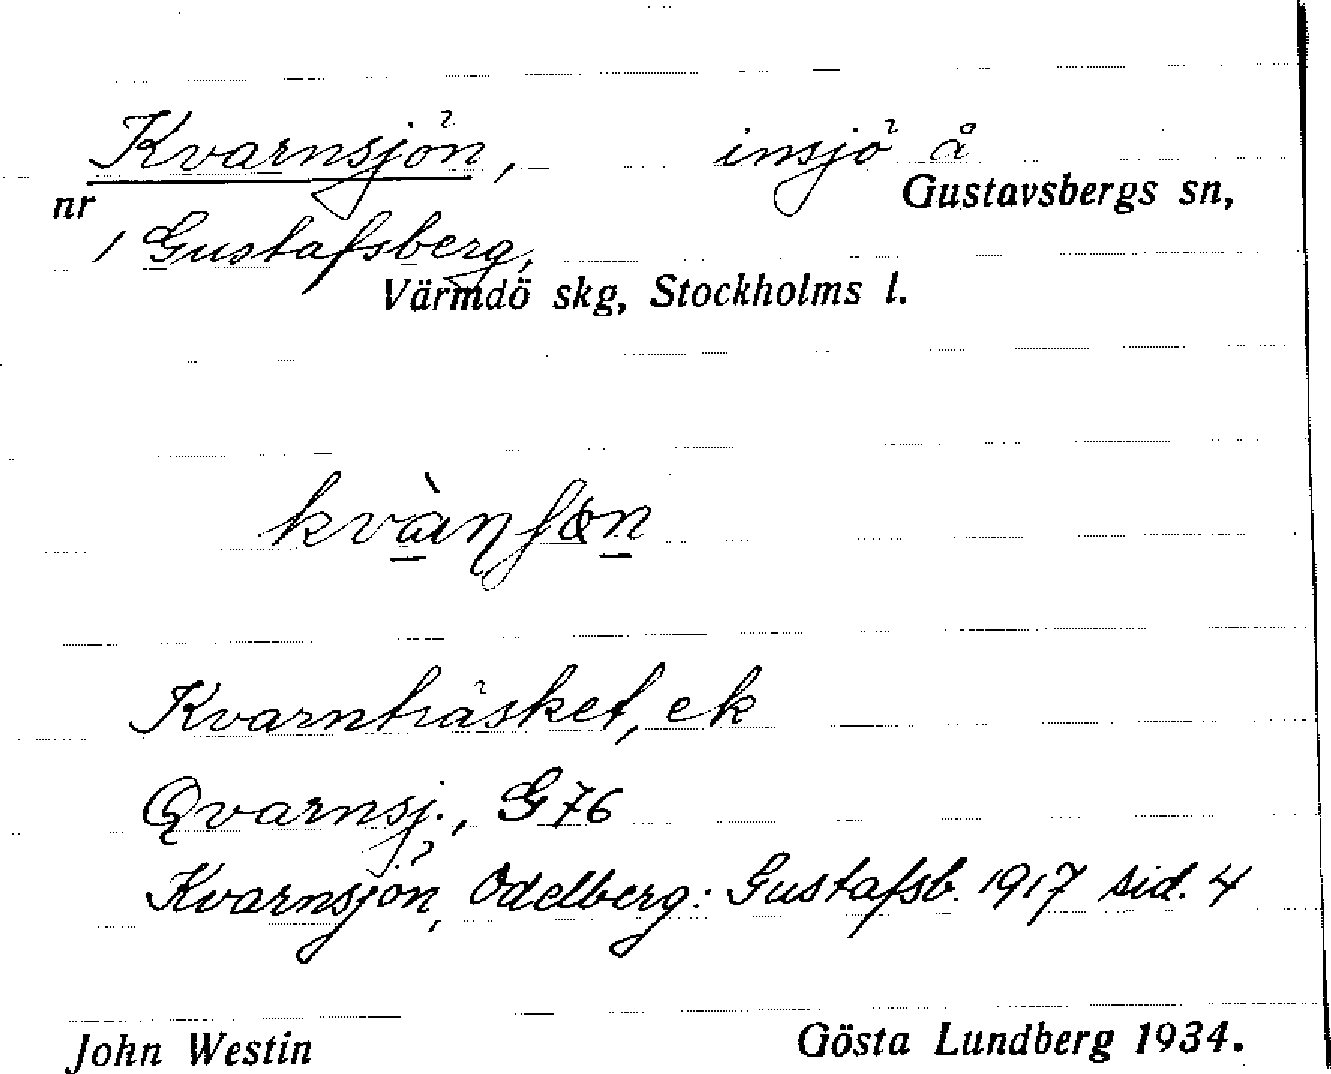 Kvarnsjön, insjö å
nr Gustavsbergs sn,
1 Gustafsberg,
Värmdö skg, Stockholms l.
Kvarnträsket, ek
Qvarnsj., G 76
Kvarnsjön, Odelberg: Gustafsb. 1917 sid. 4
John Westin Gösta Lundberg 1934.